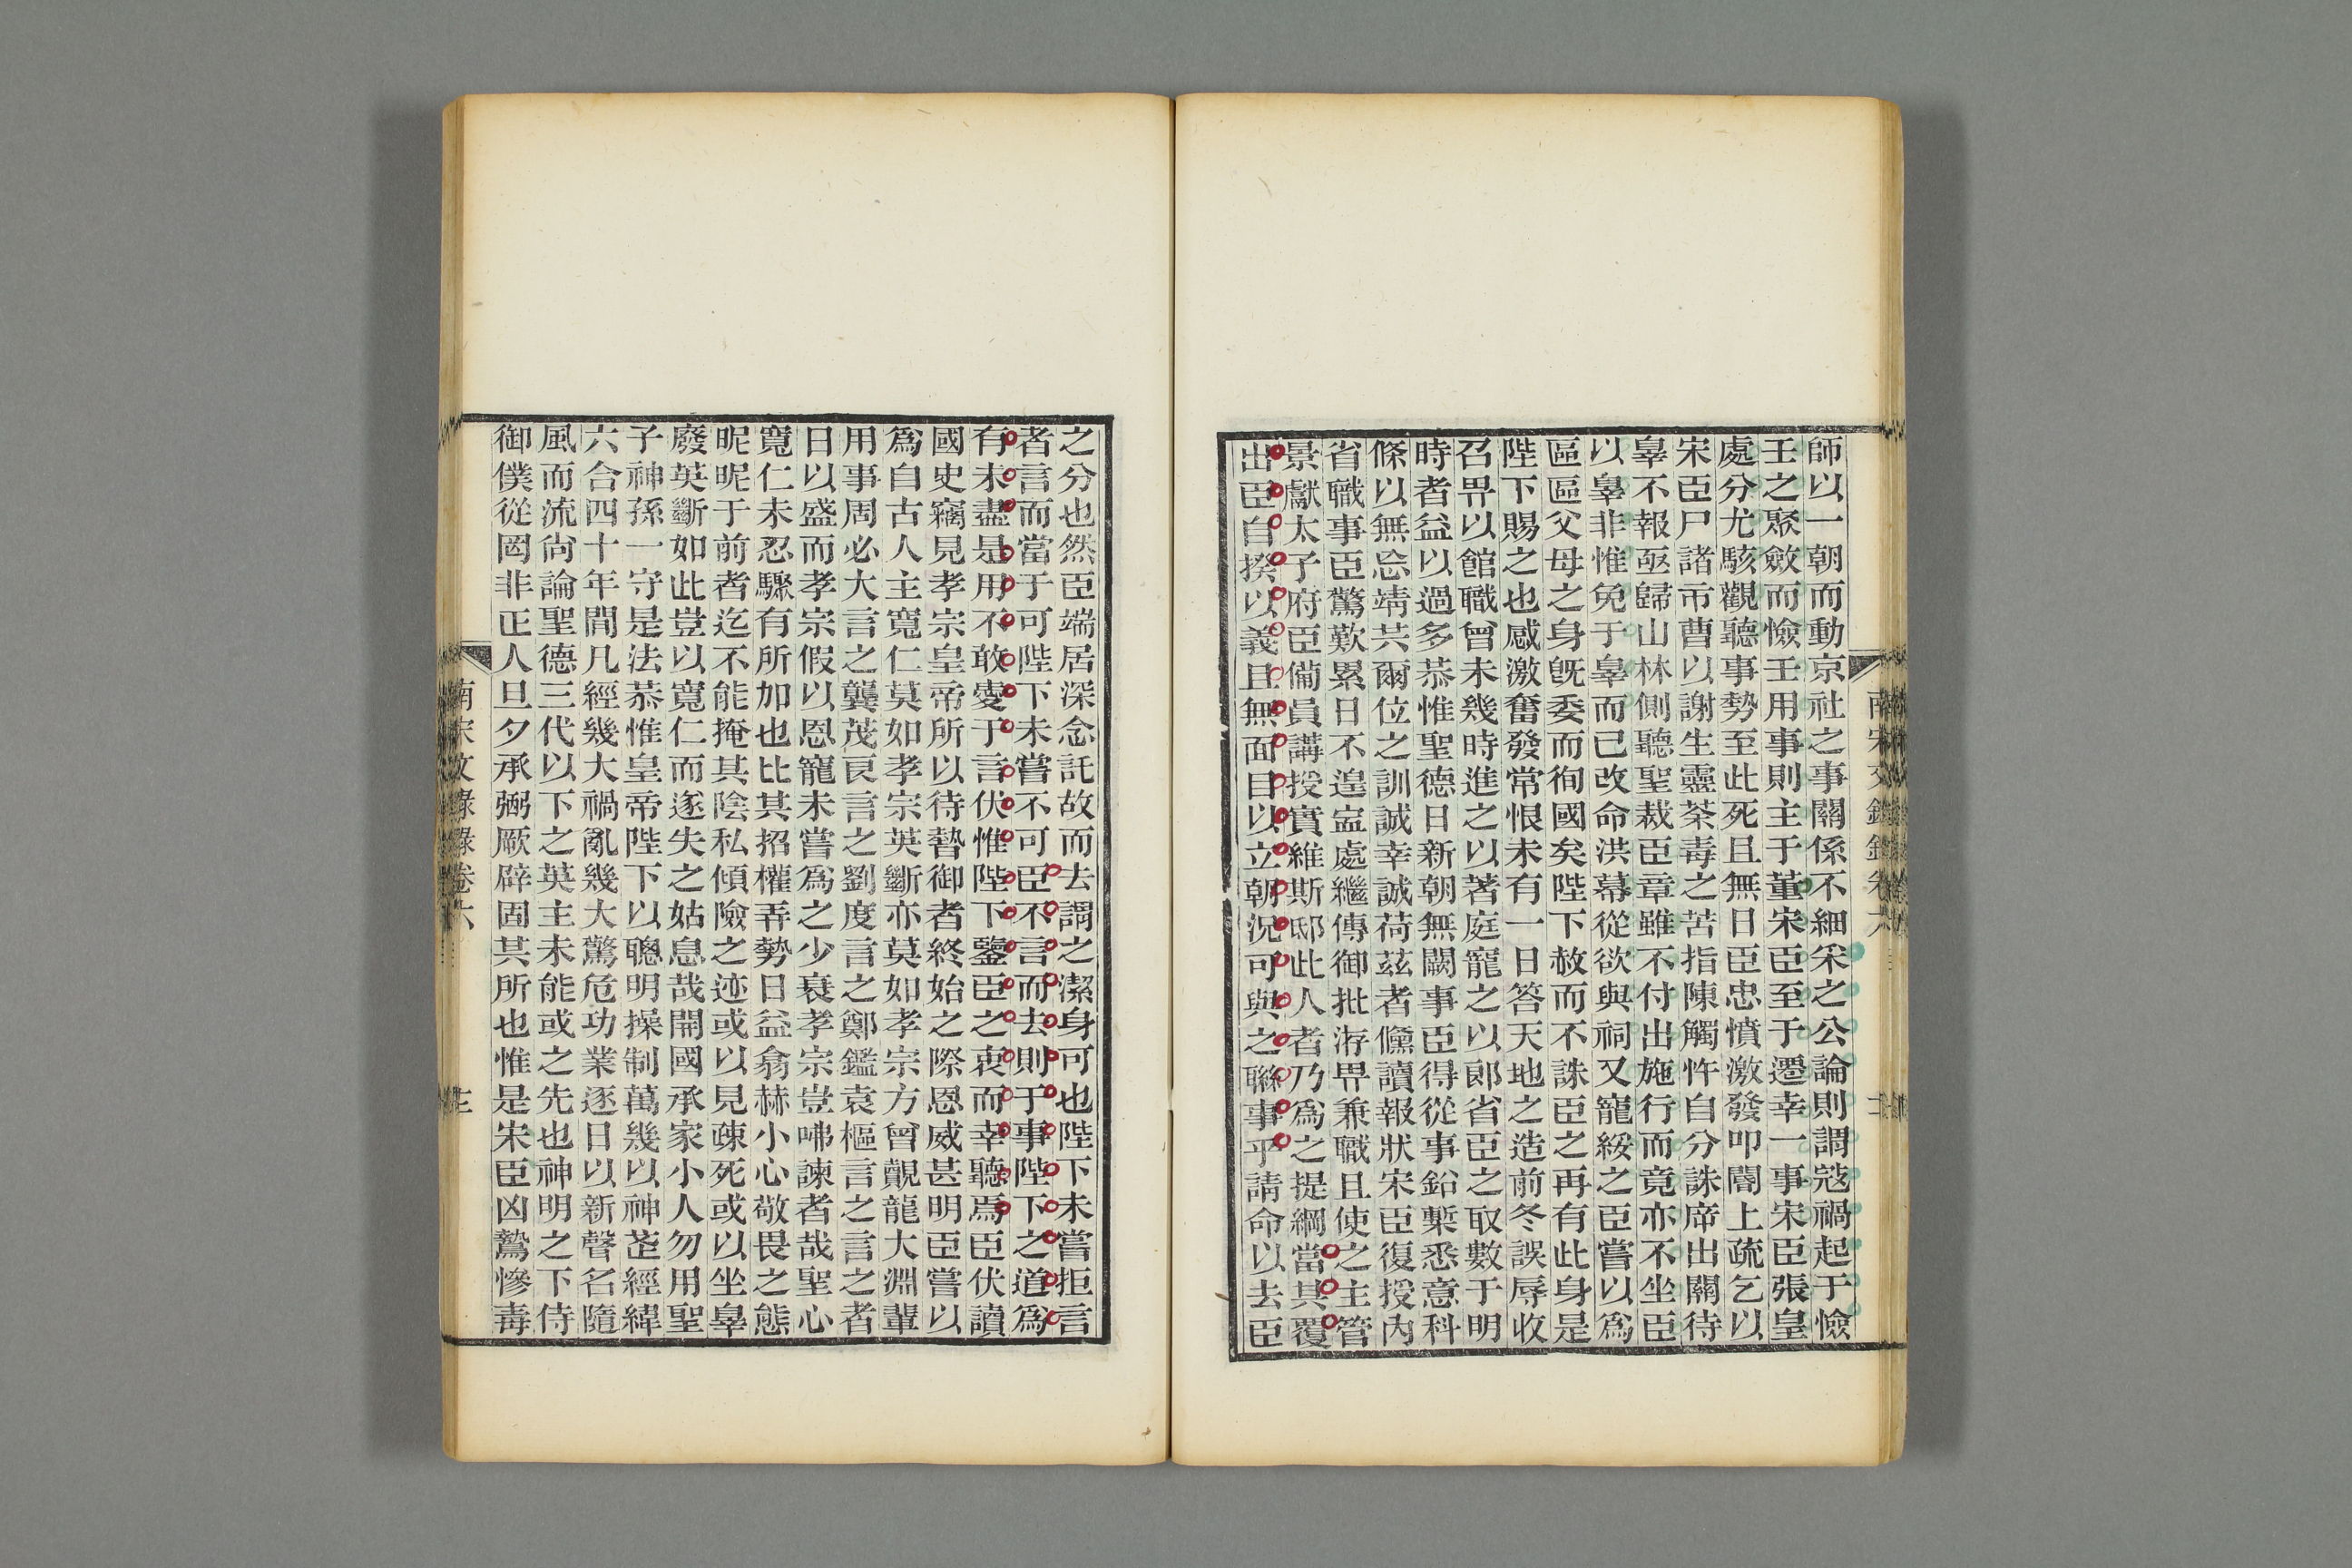 師以一朝而動京社之事關係不細采之公論則謂寇禍起于憸
壬之聚斂而憸壬用事則主于董宋臣至于遷幸一事宋臣張皇
處分尤駭觀聽事勢至此死且無日臣忠憤激發叩閽上疏乞以
宋臣尸諸市曹以謝生靈荼毒之苦指陳觸忤自分誅席出關待
辠不報亟歸山林側聽聖裁臣章雖不付出施行而竟亦不坐臣
以辠非惟免于辠而已改命洪幕從欲與祠又寵綏之臣嘗以爲
區區父母之身旣委而徇國矣陛下赦而不誅臣之再有此身是
陛下賜之也感激奮發常恨未有一日答天地之造前冬誤辱收
召畀以館職曾未幾時進之以著庭寵之以郎省臣之取數于明
時者益以過多恭惟聖德日新朝無闕事臣得從事鉛槧悉意科
條以無忘靖共爾位之訓誠幸誠荷茲者儻讀報狀宋臣復授內
省職事臣驚歎累日不遑寍處繼傳御批洊畀兼職且使之主管
景獻太子府臣備員講授實維斯邸此人者乃爲之提綱當其覆
出臣自揆以義且無面目以立朝況可與之聯事乎請命以去臣
南宋文錄錄卷六
之分也然臣端居深念託故而去謂之潔身可也陛下未嘗拒言
者言而當于可陛下未嘗不可臣不言而去則于事陛下之道爲
有未盡是用不敢愛于言伏惟陛下鑒臣之衷而幸聽焉臣伏讀
國史竊見孝宗皇帝所以待贄御者終始之際恩威甚明臣嘗以
爲自古人主寬仁莫如孝宗英斷亦莫如孝宗方曾覿龍大淵輩
用事周必大言之龔茂良言之劉度言之鄭鑑袁樞言之言之者
日以盛而孝宗假以恩寵未嘗爲之少衰孝宗豈咈諫者哉聖心
寬仁未忍驟有所加也比其招權弄勢日益翕赫小心敬畏之態
昵昵于前者迄不能掩其陰私傾險之迹或以見疎死或以坐辠
廢英斷如此豈以寬仁而遂失之姑息哉開國承家小人勿用聖
子神孫一守是法恭惟皇帝陛下以聰明操制萬幾以神莖經緯
六合四十年間凡經幾大禍亂幾大驚危功業逐日以新聲名隨
風而流尙論聖德三代以下之英主未能或之先也神明之下侍
御僕從罔非正人旦夕承弼厥辟固其所也惟是宋臣凶鷙慘毒
南宋文錄錄卷六